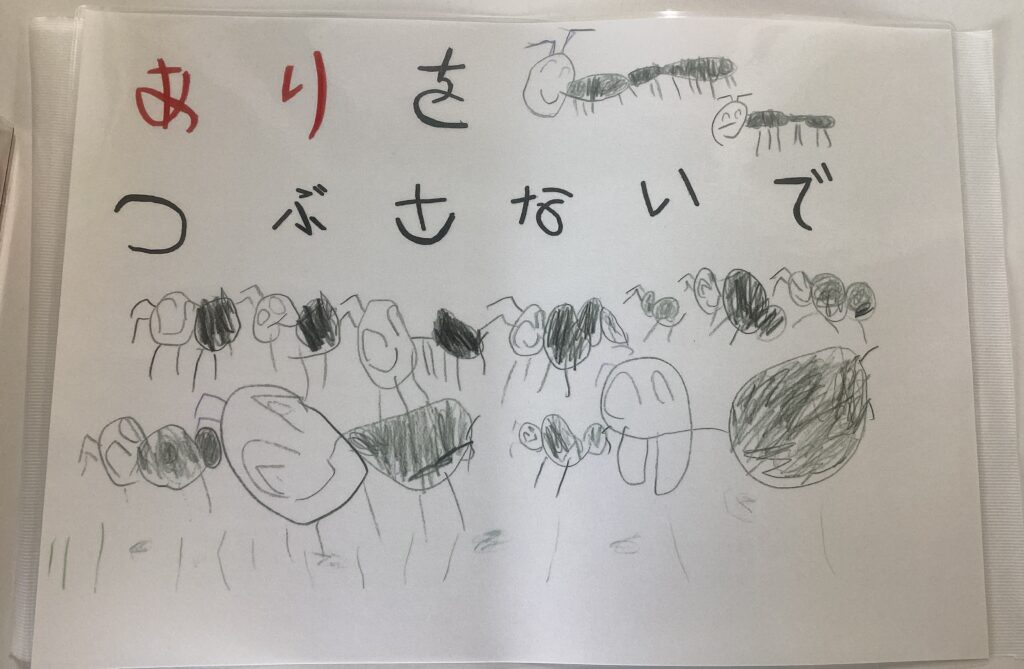 ありを
つぶさないで